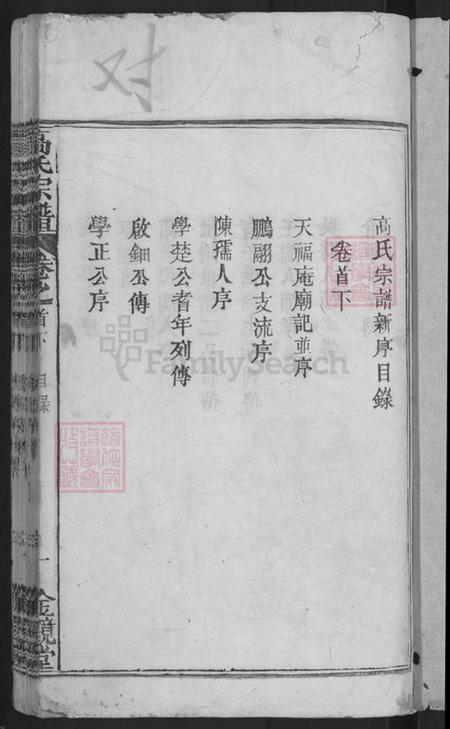 对
高氏宗譜新序目錄
卷首下
天福庵廟記並序
鵬翮公支流序
陳孺人序
學楚公耆年列傳
啟鈿公傳
學正公序
高氏宗譜
卷之首下
目錄
一
金鏡堂
FamilySearch